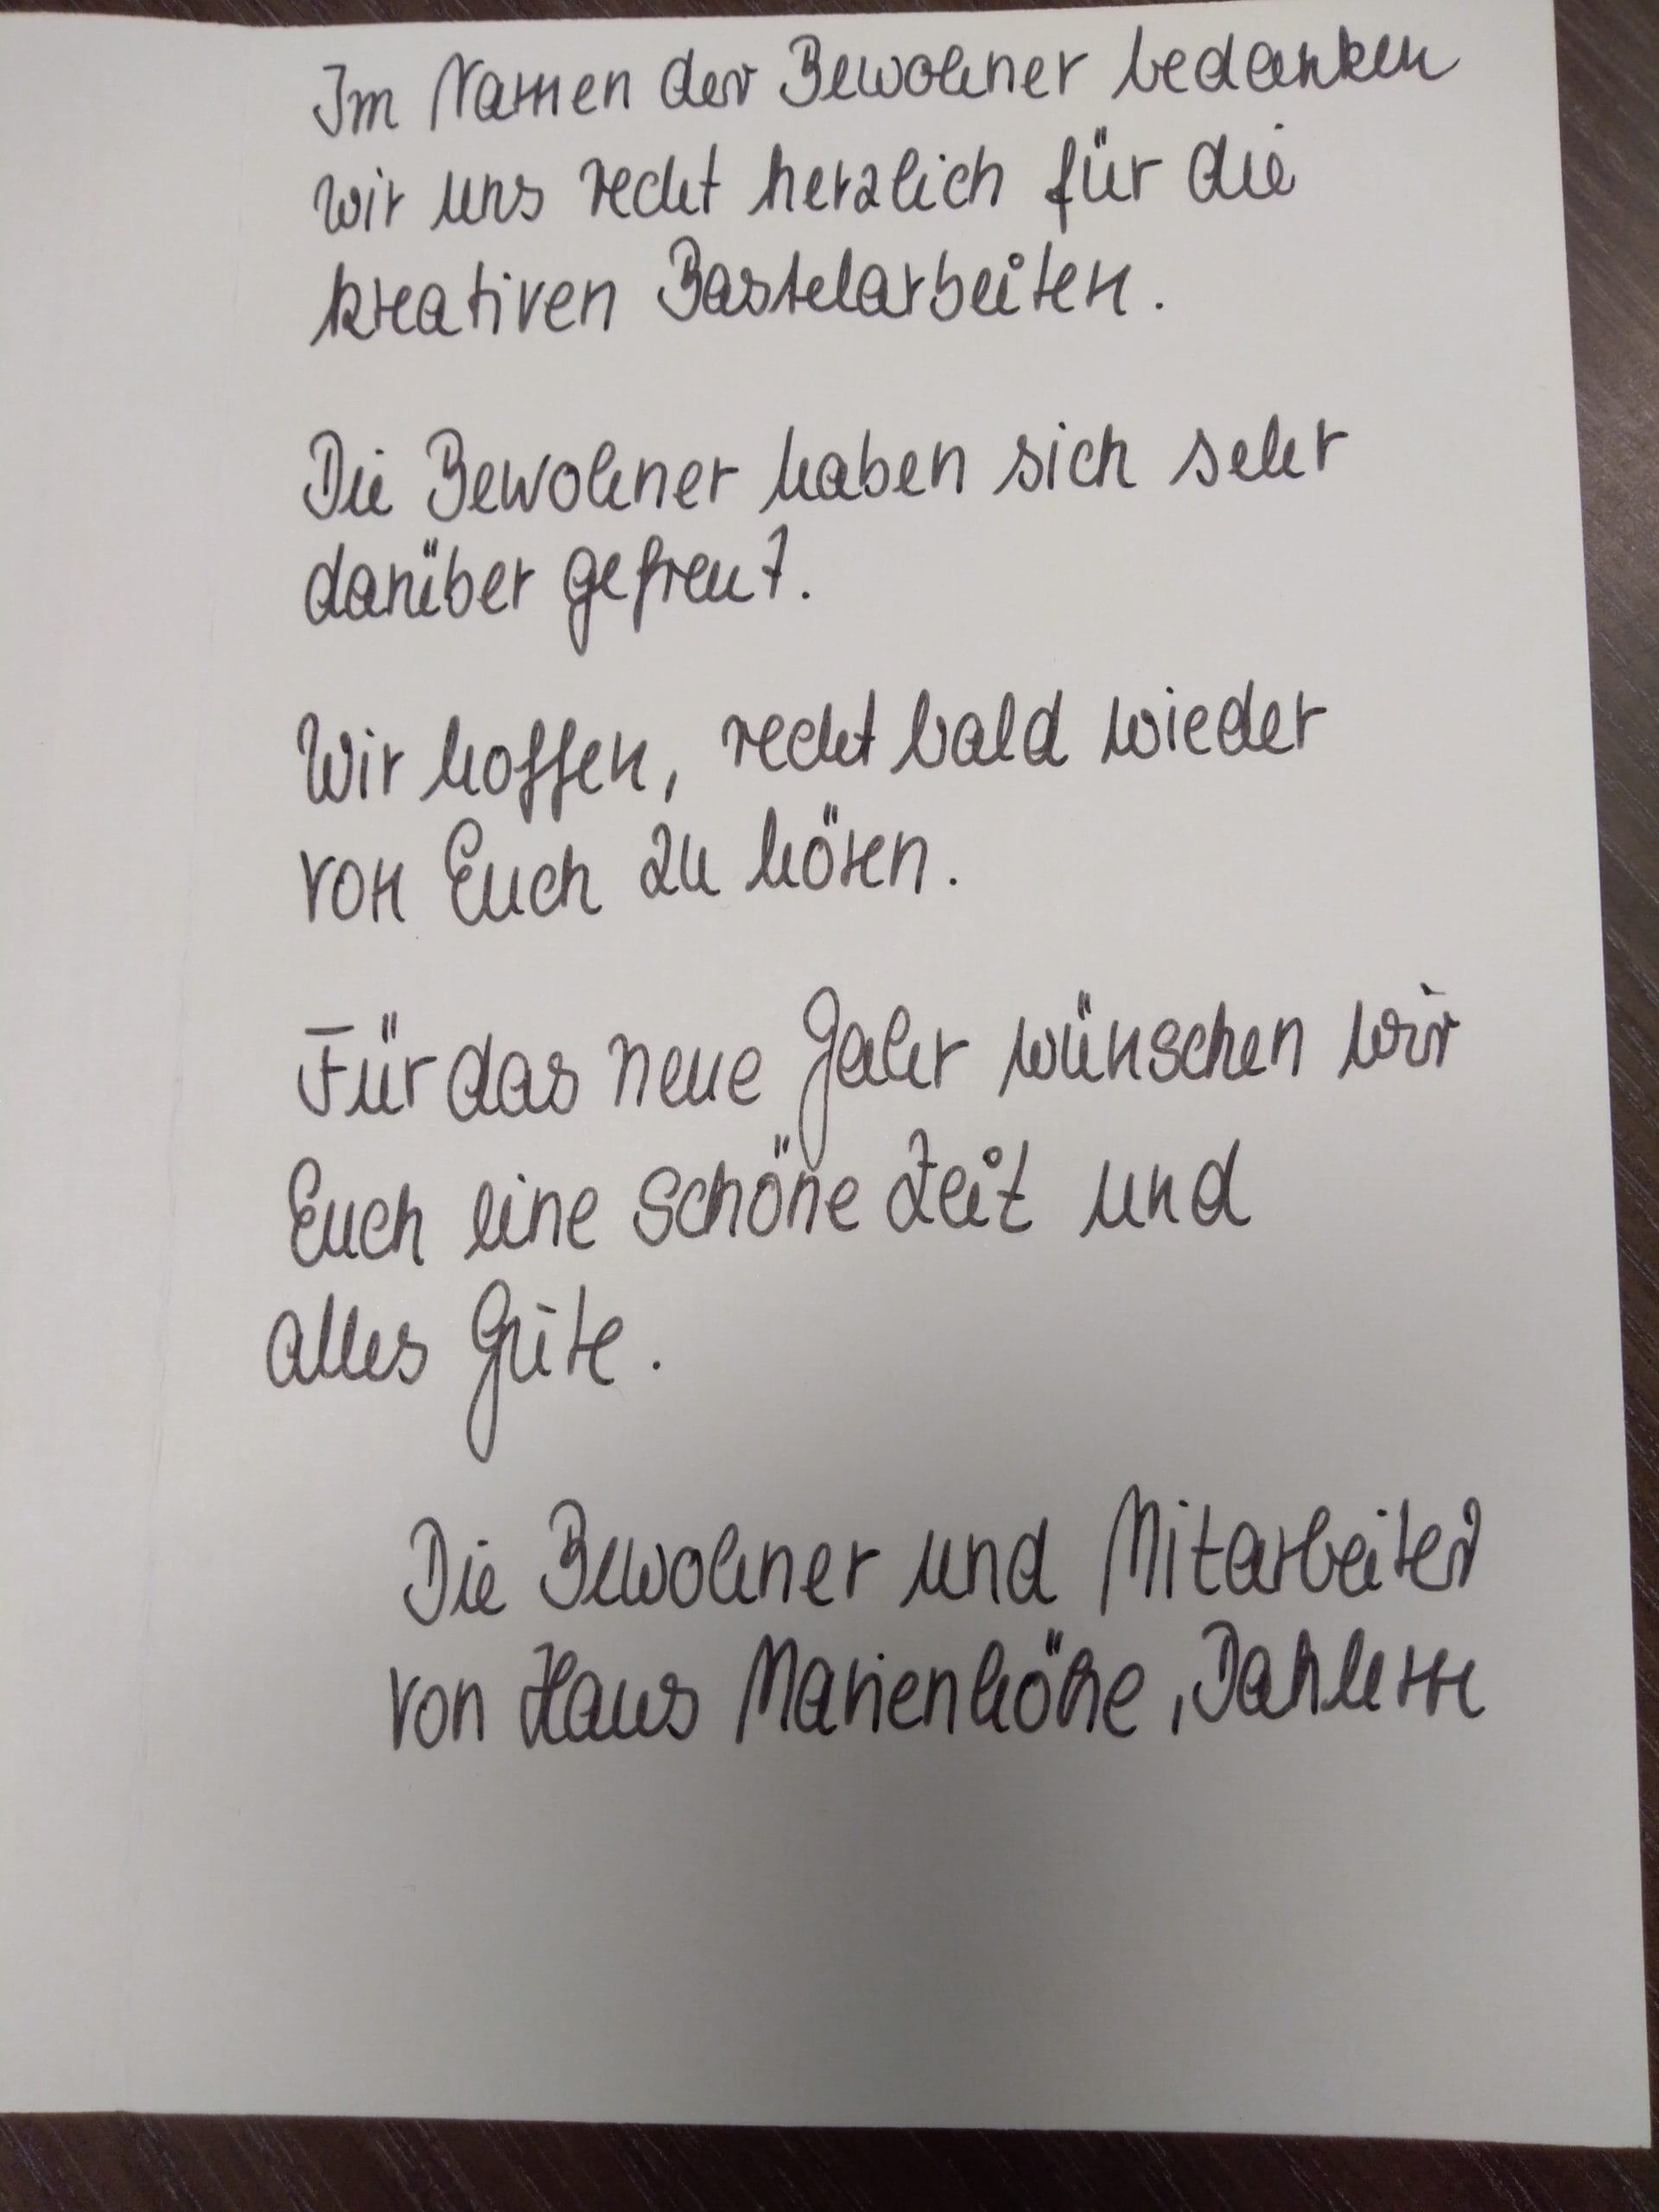 Im Namen der Bewohner bedanken
wir uns recht herzlich für die
kreativen Bastelarbeiten.
Die Bewohner haben sich sehr
darüber gefreut.
Wir hoffen, recht bald wieder
von Euch zu hören.
Für das neue Jahr wünschen wir
Euch eine schöne Zeit und
alles Gute.
Die Bewohner und Mitarbeiter
von Haus Marienhöhe, Dahlem